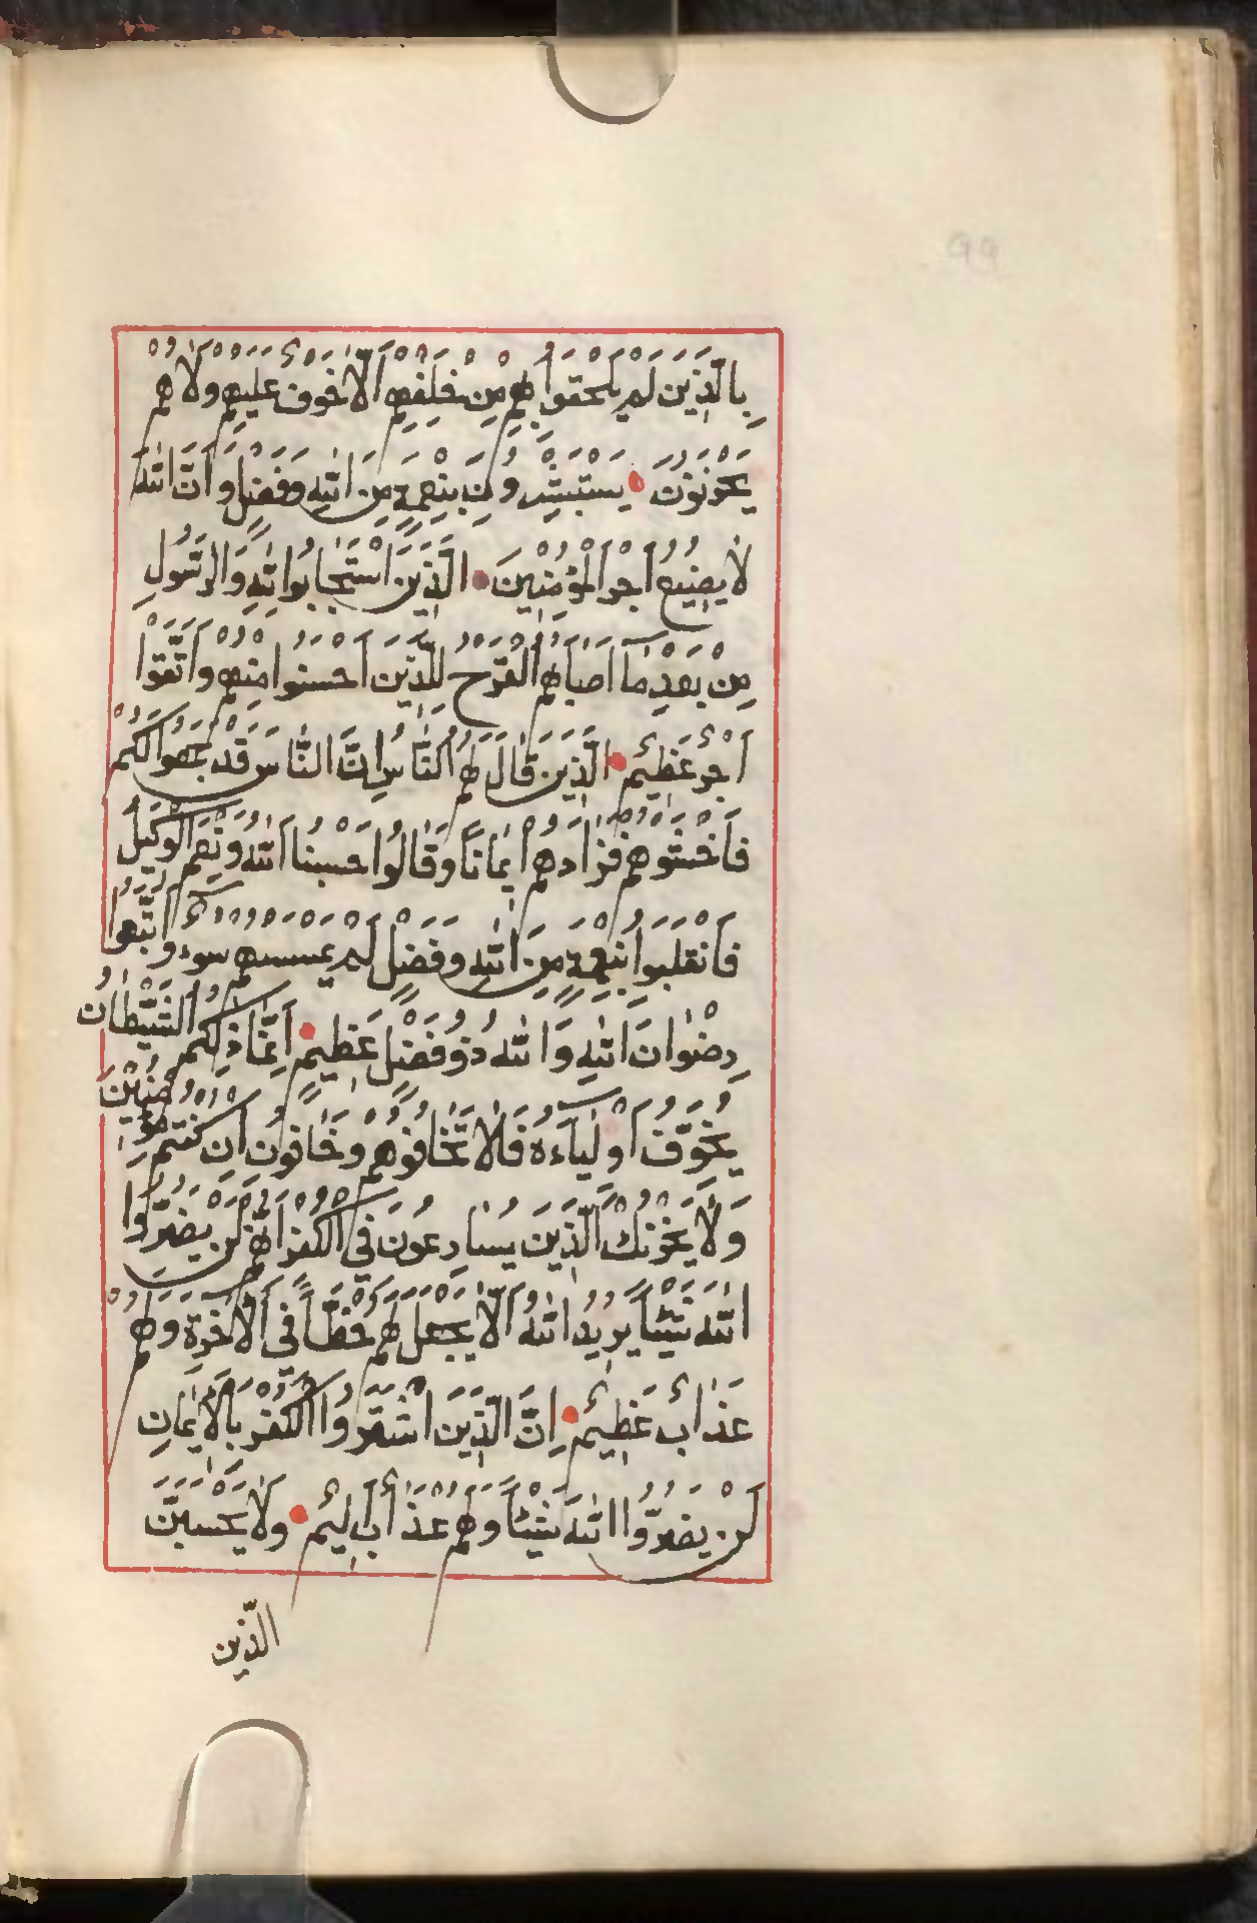 99
بِالَّذِينَ لَمْ يَلْحَقُوا بِهِمْ مِنْ خَلْفِهِمْ أَلَّا خَوْفٌ عَلَيْهِمْ وَلَا هُمْ
يَحْزَنُونَ يَسْتَبْشِرُونَ بِنِعْمَةٍ مِنَ اللّٰهِ وَفَضْلٍ وَأَنَّ اللّٰهَ
لَا يُضِيعُ أَجْرَ الْمُؤْمِنِينَ الَّذِينَ اسْتَجَابُوا لِلّٰهِ وَالرَّسُولِ
مِنْ بَعْدِ مَا أَصَابَهُمُ الْقَرْحُ لِلَّذِينَ أَحْسَنُوا مِنْهُمْ وَاتَّقَوْا
أَجْرٌ عَظِيمٌ الَّذِينَ قَالَ لَهُمُ النَّاسُ إِنَّ النَّاسَ قَدْ جَمَعُوا لَكُمْ
فَاخْشَوْهُمْ فَزَادَهُمْ إِيمَانًا وَقَالُوا حَسْبُنَا اللّٰهُ وَنِعْمَ الْوَكِيلُ
فَانْقَلَبُوا بِنِعْمَةٍ مِنَ اللّٰهِ وَفَضْلٍ لَمْ يَمْسَسْهُمْ سُوءٌ وَاتَّبَعُوا
رِضْوَانَ اللّٰهِ وَاللّٰهُ ذُو فَضْلٍ عَظِيمٍ إِنَّمَا ذٰلِكُمُ الشَّيْطَانُ
يُخَوِّفُ أَوْلِيَاءَهُ فَلَا تَخَافُوهُمْ وَخَافُونِ إِنْ كُنْتُمْ مُؤْمِنِينَ
وَلَا يَحْزُنْكَ الَّذِينَ يُسَارِعُونَ فِي الْكُفْرِ إِنَّهُمْ لَنْ يَضُرُّوا
اللّٰهَ شَيْئًا يُرِيدُ اللّٰهُ أَلَّا يَجْعَلَ لَهُمْ حَظًّا فِي الْآخِرَةِ وَلَهُمْ
عَذَابٌ عَظِيمٌ إِنَّ الَّذِينَ اشْتَرَوُا الْكُفْرَ بِالْإِيمَانِ
لَنْ يَضُرُّوا اللّٰهَ شَيْئًا وَلَهُمْ عَذَابٌ أَلِيمٌ وَلَا يَحْسَبَنَّ
الَّذِين